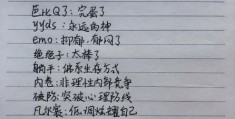 芭比Q了：完蛋了
yyds：永远的神
emo：抑郁，郁闷了
绝绝子：太棒了
躺平：佛系生存方式
内卷：非理性内部竞争
破防：突破心理防线
凡尔赛：低调炫耀自己